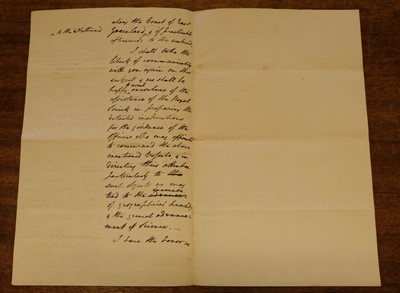 to the Northward
along the Coast of East
Greenland, & if practicable
afterwards to the
I shall take the
liberty of communicating
with you again on this
subject & we shall be
happy to avail ourselves of the
assistance of the Royal
Society in preparing the
detailed instructions
for the guidance of the
Officers who may
to command the above
mentioned Vessels, & in
directing their attention
particularly to
such objects as may
tend to the
of geographical knowledge
& the general advance-
ment of Science. —
I have the honor